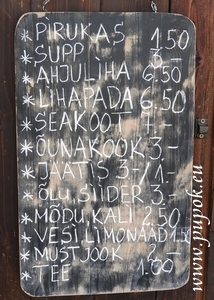 * PIRUKAS 1.50
* SUPP 3.-
* AHJULIHA 6.50
* LIHAPADA 6.50
* SEAKOOT 7.-
* ÕUNAKOOK 3.-
* JÄÄTIS 3.-/1.-
* ÕLU, SIIDER 3.-
* MÕDU, KALI 2.50
* VESI LIMONAAD 1.50
* MUST JOOK 2.-
* TEE 1.00
www.pupok.eu